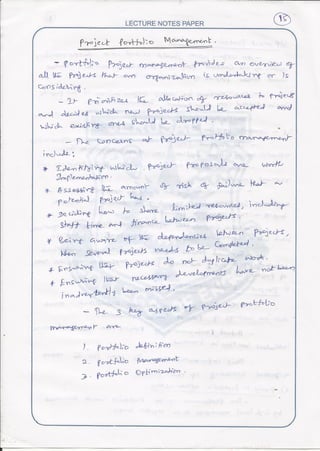 LECTURE NOTES PAPER
15
Project Portfolio Management.
- Portfolio Project management provides an overview of
all the Projects that an organization is undertaking or is
Considering.
- It Prioritizes the allocation of resources to Projects
and decides which new Projects should be accepted and
which existing ones should be dropped.
- The Concerns of Project Portfolio management
include:
* Identifying which Project Proposals are worth
Implementation
* Assessing the amount of risk of failure that a
Potential Project has.
* Deciding how to share limited resources, including
staff time and finance between Projects.
* Being aware of the dependencies between Projects,
when several Projects needs to be Completed.
* Ensuring that Projects do not duplicate work.
* Ensuring that necessary developments have not been
inadvertently been missed.
- The 3 key aspects of Project Portfolio
management are.
1. Portfolio definition
2. Portfolio Management
3. Portfolio Optimization.